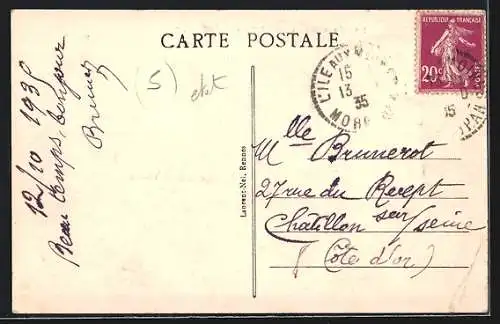 CARTE POSTALE
RÉPUBLIQUE FRANÇAISE
20c
POSTES
L'ILE AUX MOINES
15
13
35
MORBIHAN
15
12/10 1935
Beau temps, bonjour
(5)
Laurent-Nel, Rennes
Mlle Brunerot
27 rue du
Chatillon sur seine
(Côte d'or)